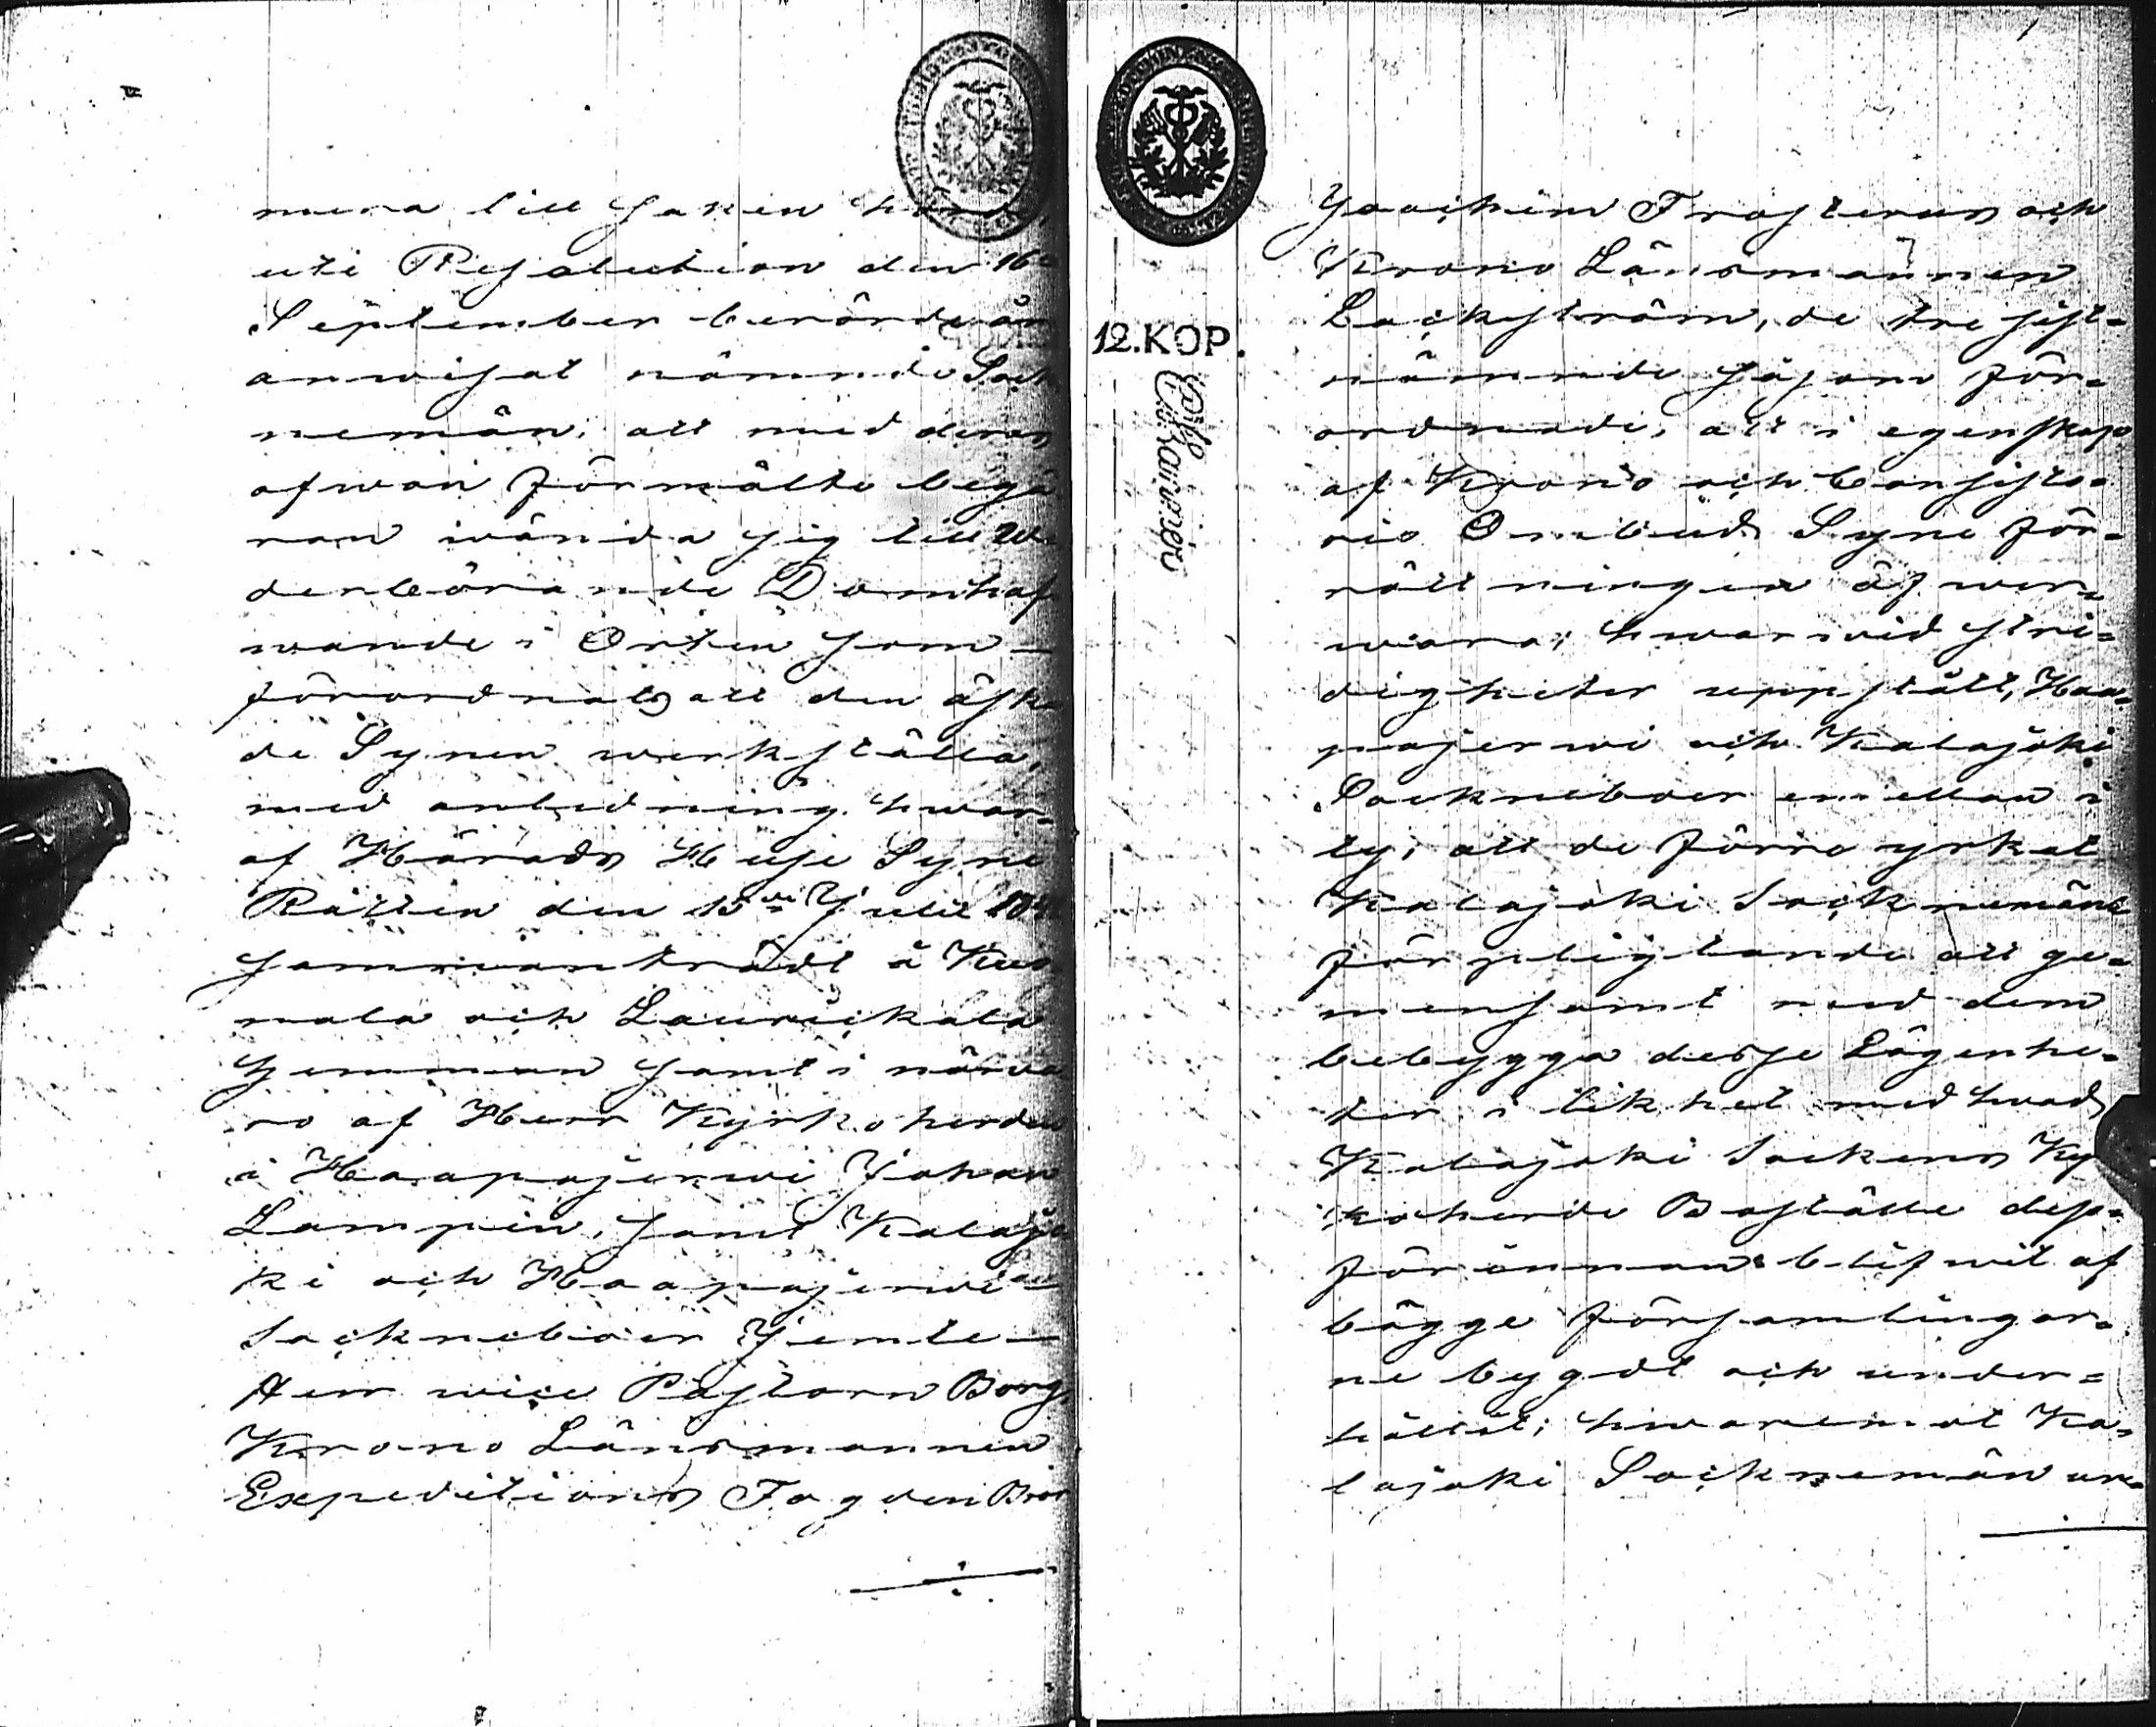 mera till saken hör
uti Resolution den 16de
September berörde år
anwisat nämnde Sock
nemän, att med deras
ofwan förmälte begä
ran wända sig till We
derbörande Domhaf
wande i Orten som
förordnats att den äsk
de Synen werkställa,
med anledning hwar=
af Härads Huse Syne
Rätten den 15de Julii
sammanträdt å Kus
mala och Laurickala
Hemman samt i närwa
ro af Herr Kyrkoherden
i Haapajerwi Johan
Lampin, samt Kalajo
ki och Haapajerwi
Sockneboer Jemte
Herr wice Pastorn Borg,
Krono Länsmannen
Expeditions Fogden
12.KOP
Joachim Frosterus och
Krono Länsmannen
Lackström, de tre sist=
nämnde såsom för=
ordnade, att i egenskap
af Krono och Consisto=
rio Ombud Syne för=
rättningen öfwer=
wara; hwarwid stri=
digheter uppstått, Haa=
pajerwi och Kalajoki
Sockneboer emellan i
ty, att de förre yrkat
Kalajoki Socknemäns
förpligtande att ge=
mensamt med dem
bebygga desse Lägenhe=
ter i likhet med hwad
Kalajoki Sockens Ky
rkoherde Boställe dess=
förinnan blifwit af
bägge församlingar=
ne bygdt och under=
hållit; hwaremot Ka=
lajoki Socknemän